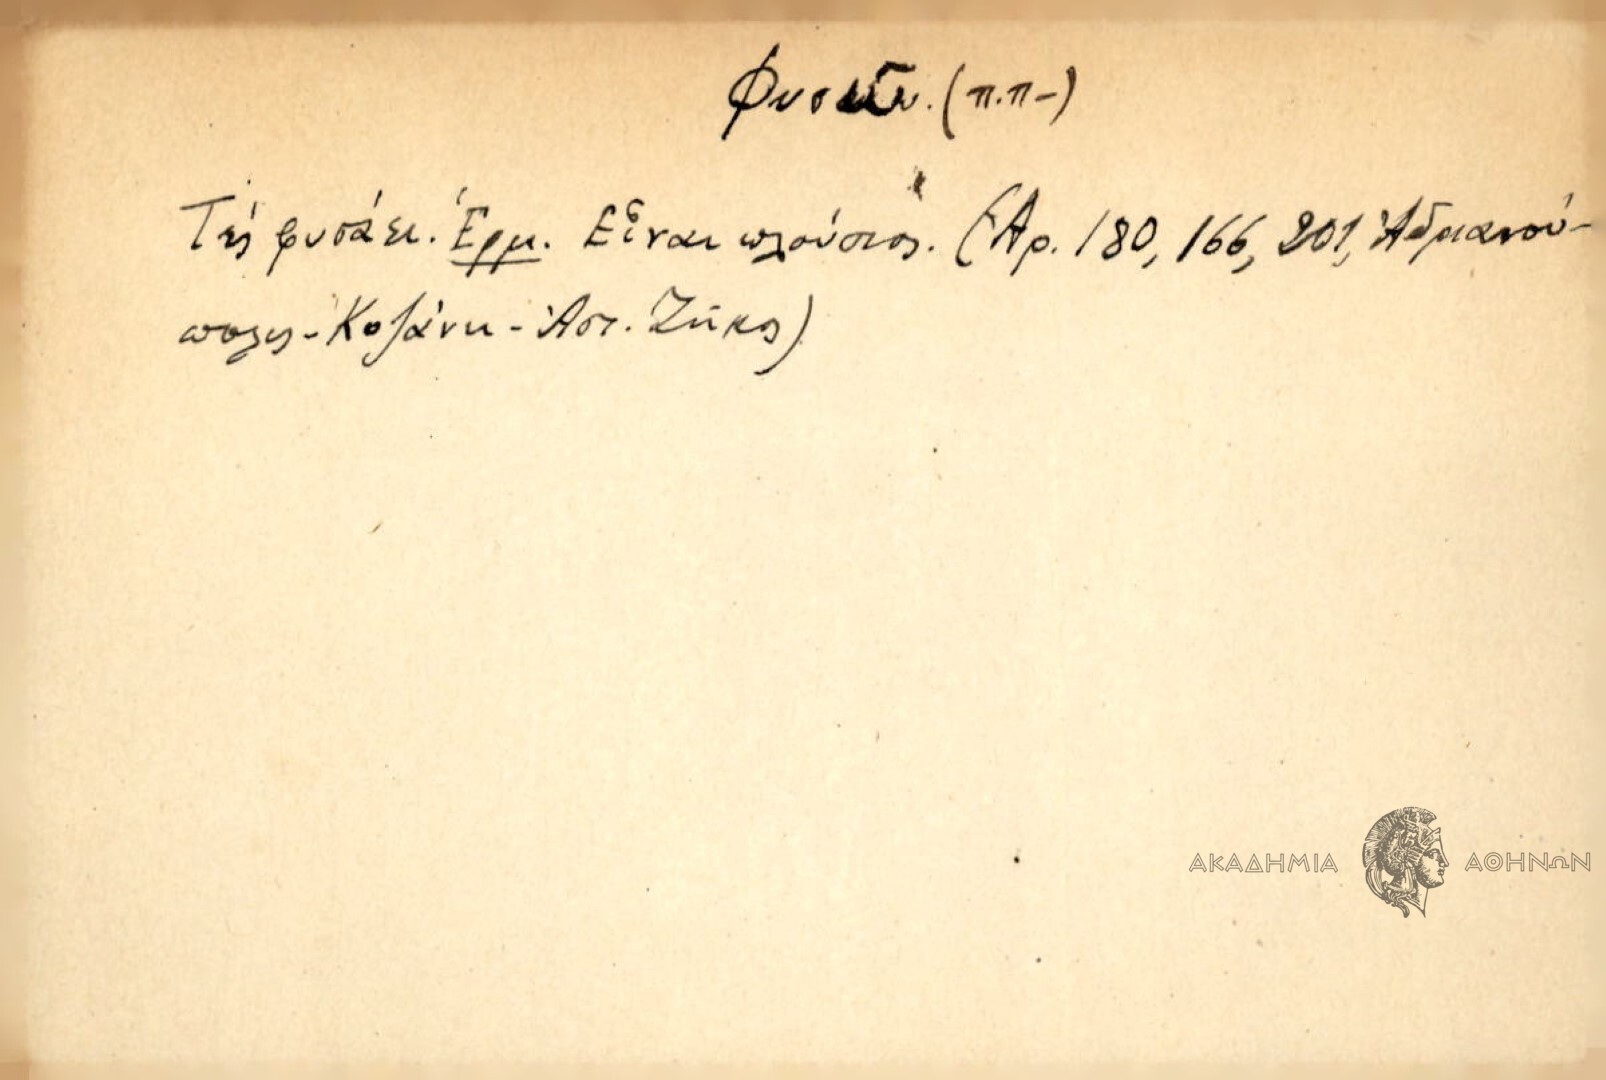 Φυσῶ. (π.π-)
Τὶς φυσάει. Ἑρμ. Εἶναι πλούσιος. (Ἀρ. 180, 166, 201, Ἀδριανού-
πολις - Κοζάνη - Ἀστ. Ζῆκος)
ΑΚΑΔΗΜΙΑ ΑΘΗΝΩΝ